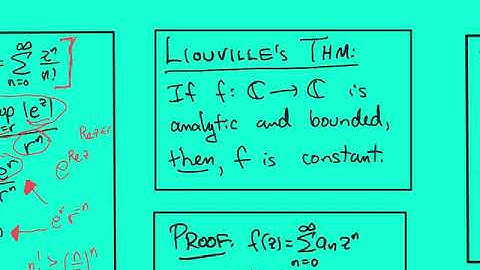 = ∞Σn=0 zⁿ/n! ]
sup |e^z|
=r
rⁿ
Re z ≤ r
e^{Re z}
e^r
rⁿ
e^r r^{-n}
n! ≥ (n/
)ⁿ
LIOUVILLE'S THM:
If f: ℂ → ℂ is
analytic and bounded,
then, f is constant.
PROOF: f(z) = ∞Σn=0 aₙzⁿ